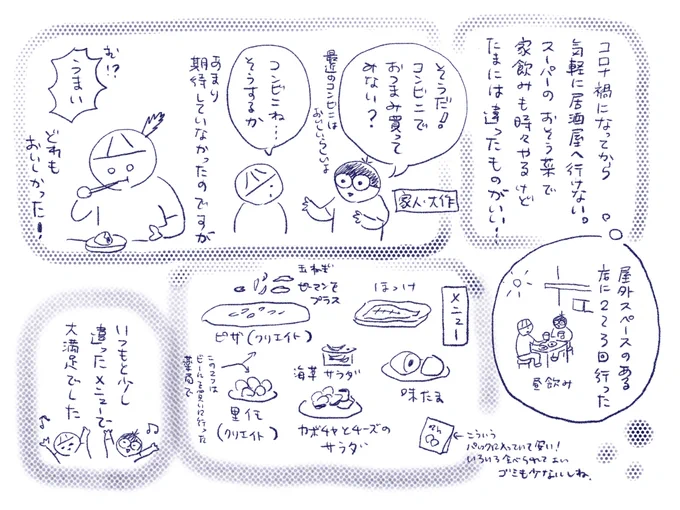 コロナ禍になってから
気軽に居酒屋へ行けない。
スーパーのおそう菜で
家飲みも時々やるけど
たまには違ったものがいい！
屋外スペースのある
店に2〜3回行った
昼飲み
そうだ！
コンビニで
おつまみ買って
みない？
家人・大作
最近のコンビニは
おいしいらしいよ
コンビニね…
そうするか
あまり
期待していなかったのですが
お!?
うまい
どれも
おいしかった！
メニュー
ほっけ
玉ねぎ
ピーマンを
プラス
ピザ(クリエイト)
味たま
海草サラダ
カボチャとチーズの
サラダ
里イモ
(クリエイト)
この2つは
ビールを買いに行った
薬局で
←こういう
パックに入っていて安い！
いろいろ食べられてよい
ゴミも少ないしね。
いつもと少し
違ったメニューで
大満足でした